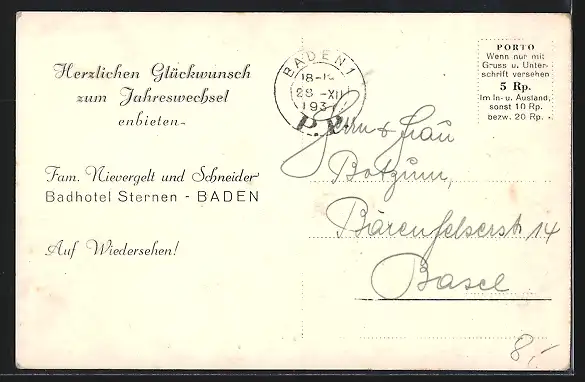 Herzlichen Glückwunsch
zum Jahreswechsel
enbieten-
Fam. Nievergelt und Schneider
Badhotel Sternen - BADEN
Auf Wiedersehen!
BADEN 1
28 -XII
P.P.
PORTO
Wenn nur mit
Gruss u. Unter-
schrift versehen
5 Rp.
Im In- u. Ausland,
sonst 10 Rp.
bezw. 20 Rp.
Herrn & Frau
Botzum,
Bärenfelserstr 14
Basel
8,-